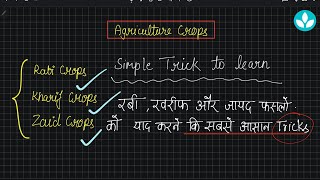 Agriculture Crops
Simple Trick to learn
Rabi Crops
Kharif Crops
Zaid Crops
रबी, खरीफ और जायद फसलो
को याद करने कि सबसे आसान Tricks